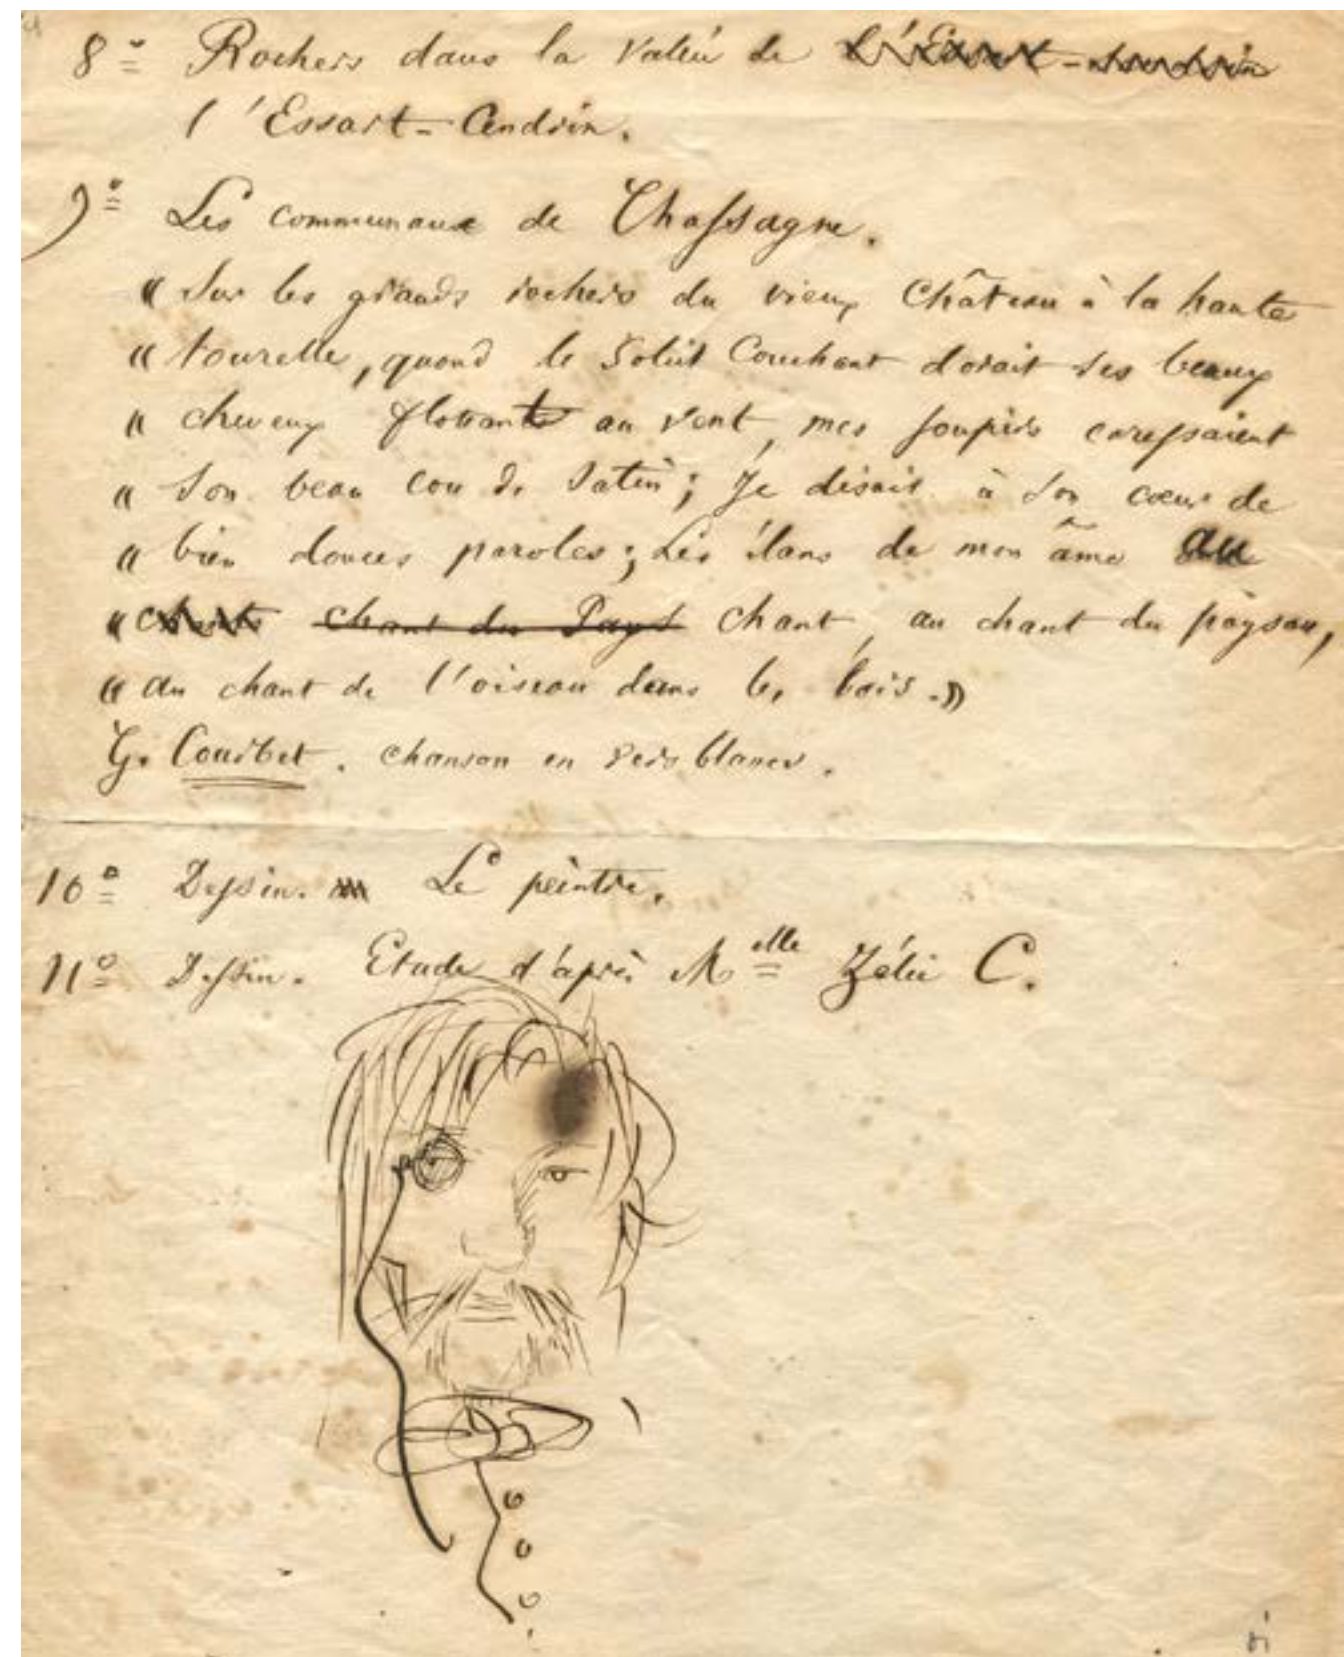 8° Rochers dans la Valée de
l'Essart-Cendrin.
9° Les communaux de Chassagne.
« Sur les grands rochers du vieux Château à la haute
« tourelle, quand le Soleil Couchant dorait ses beaux
« cheveux flottants au vent, mes soupirs caressaient
« Son beau cou de Satin; Je disais à son cœur de
« bien douces paroles; Les élans de mon âme au
« chant du Pays chant, au chant du paysan,
« au chant de l'oiseau dans les bois.»
G. Courbet. chanson en vers blancs.
10° Dessin. Le peintre.
11° Dessin. Etude d'après Melle Zélie C.